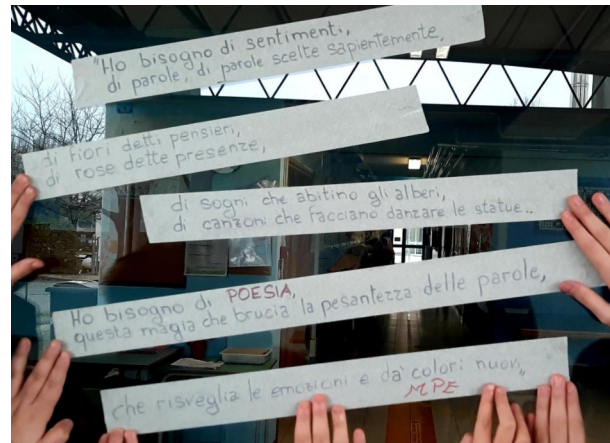 "Ho bisogno di sentimenti,
di parole, di parole scelte sapientemente,
di fiori detti pensieri,
di rose dette presenze,
di sogni che abitino gli alberi,
di canzoni che facciano danzare le statue..
Ho bisogno di POESIA,
questa magia che brucia la pesantezza delle parole,
che risveglia le emozioni e dà colori nuovi„
MPE